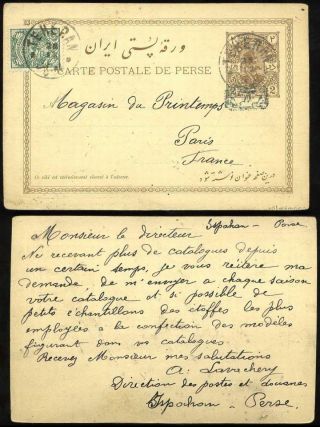 TEHERAN
TEHERAN
ورقه پستی ایران
CARTE POSTALE DE PERSE
2
2
Magasin du Printemps
Paris
France
Ce côté est exclusivement réservé à l'adresse.
درین صفحه عنوان نوشته شود
Ispahan - Perse
Monsieur le directeur
Ne recevant plus de catalogues depuis
un certain temps, je vous réitère ma
demande, de m'envoyer a chaque saison
votre catalogue et si possible de
petits échantillons des étoffes les plus
employées a la confection des modèles
figurant dans vos catalogues.
Recevez Monsieur mes salutations
A. Lavachery
Direction des postes et douanes
Ispahan - Perse.